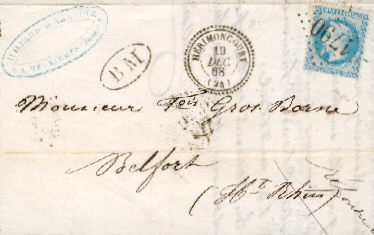 B M
HÉRIMONCOURT
19
DÉC.
68
(24)
1790
Monsieur Fois Gros Borne
Belfort
(Ht Rhin)